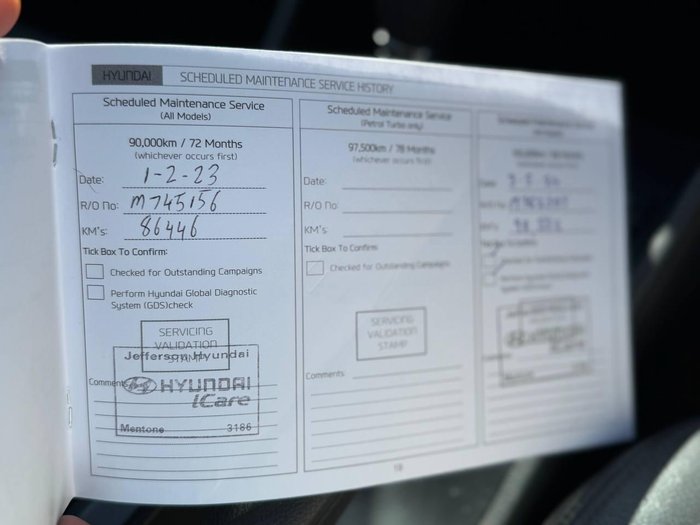 HYUNDAI SCHEDULED MAINTENANCE SERVICE HISTORY
Scheduled Maintenance Service
(All Models)
90,000km / 72 Months
(whichever occurs first)
Date: 1-2-23
R/O No: M745156
KM's: 86446
Tick Box To Confirm:
Checked for Outstanding Campaigns
Perform Hyundai Global Diagnostic
System (GDS)check
SERVICING
VALIDATION
STAMP
Jefferson Hyundai
Comments:
HYUNDAI
iCare
Mentone 3186
Scheduled Maintenance Service
(Petrol Turbo only)
97,500km / 78 Months
(whichever occurs first)
Date:
R/O No:
KM's:
Tick Box To Confirm:
Checked for Outstanding Campaigns
SERVICING
VALIDATION
STAMP
Comments:
Scheduled Maintenance Service